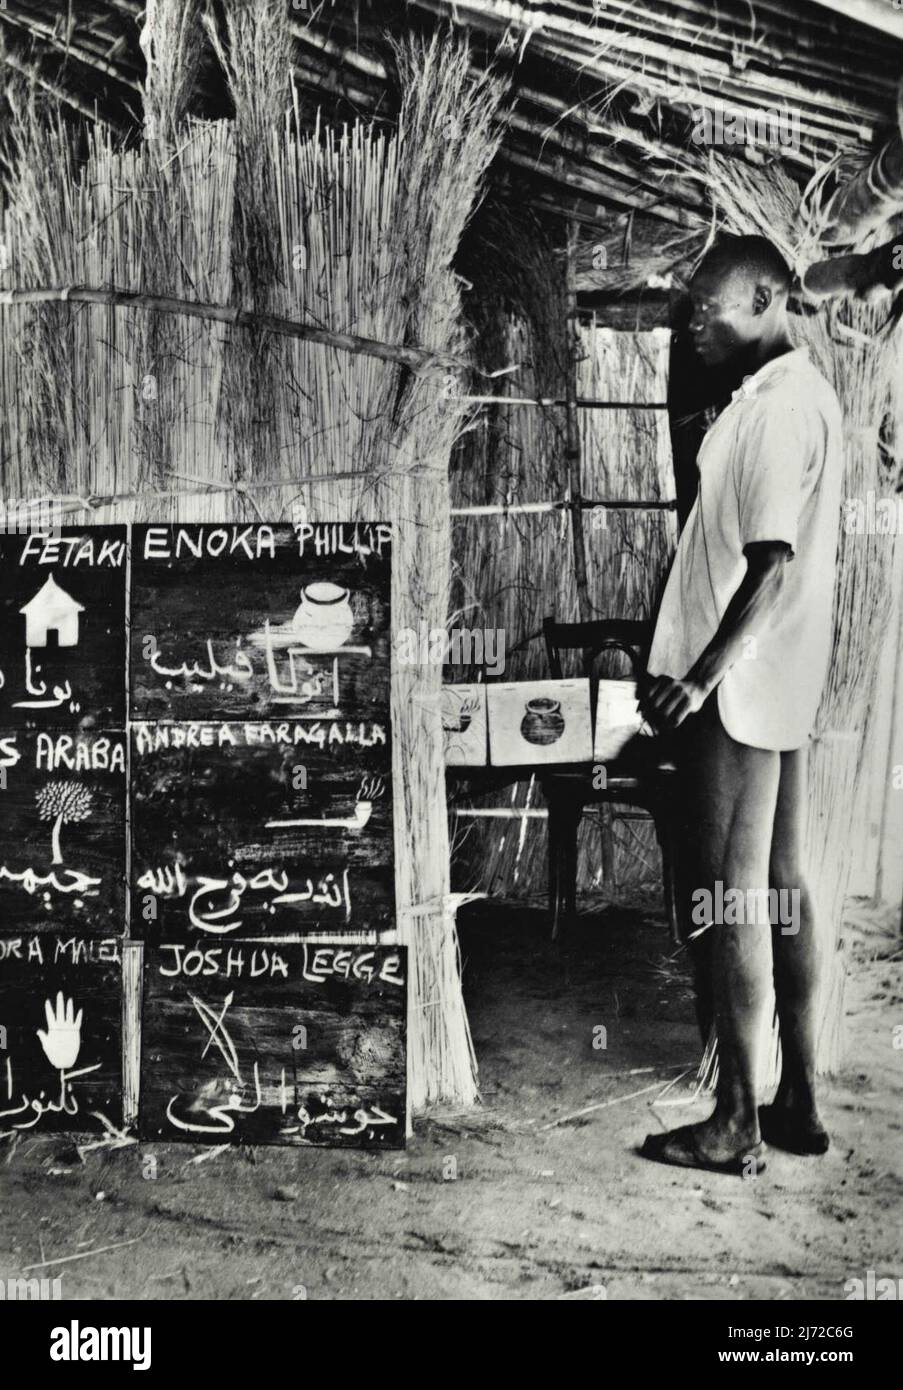 FETAKI
يونا
ENOKA PHILLIP
انوكا فيليب
S ARABA
ANDREA FARAGALLA
اندريه فرج الله
JOSHUA LEGGE
جوشوا القى
alamy
Image ID: 2J72C6G
www.alamy.com